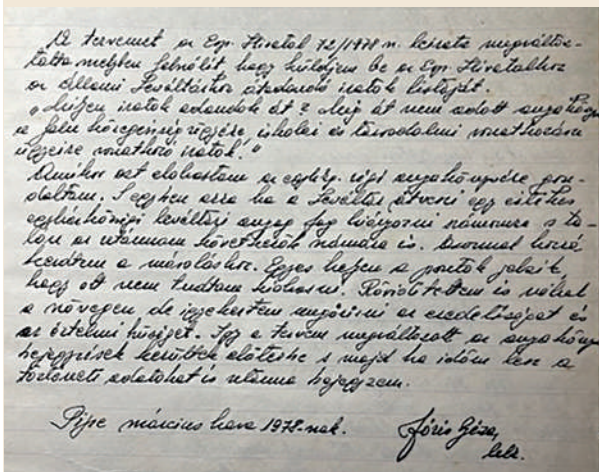 A tervemet az Egy. Hivatal 72/1978 n. leirata megváltoz-
tatta melyben felhívót hogy küldjem be az Egy. Hivatalhoz
az Állami Levéltárhoz átadandó iratok listáját.
"Milyen iratok adandók át? Még át nem adott anyakönyv
a falu közegészségügyére, iskolai és társadalmi vonatkozású
ügyeire vonatkozó iratok."
Amikor ezt elolvastam az egyházi. régi anyakönyvére gon-
doltam. S egyben arra ha a Levéltár átveszi egy értékes
egyházközségi levéltári anyag fog hiányozni számomra s ta-
lán az utánnam következők számára is. Azonnal hozzá
kezdtem a másoláshoz. Egyes helyen a pontok jelzik,
hogy ott nem tudtam kiolvasni. Rövidítettem is néhol
a szövegen, de igyekeztem megőrizni az eredetiséget és
az értelmi hűséget. Így a tervem megváltozott az anyakönyvi
bejegyzések kerültek előtérbe s majd ha időm lesz a
történeti adatokat is utánna bejegyzem.
Pipe március hava 1978.-nak.
Jóris Géza,
lelk.